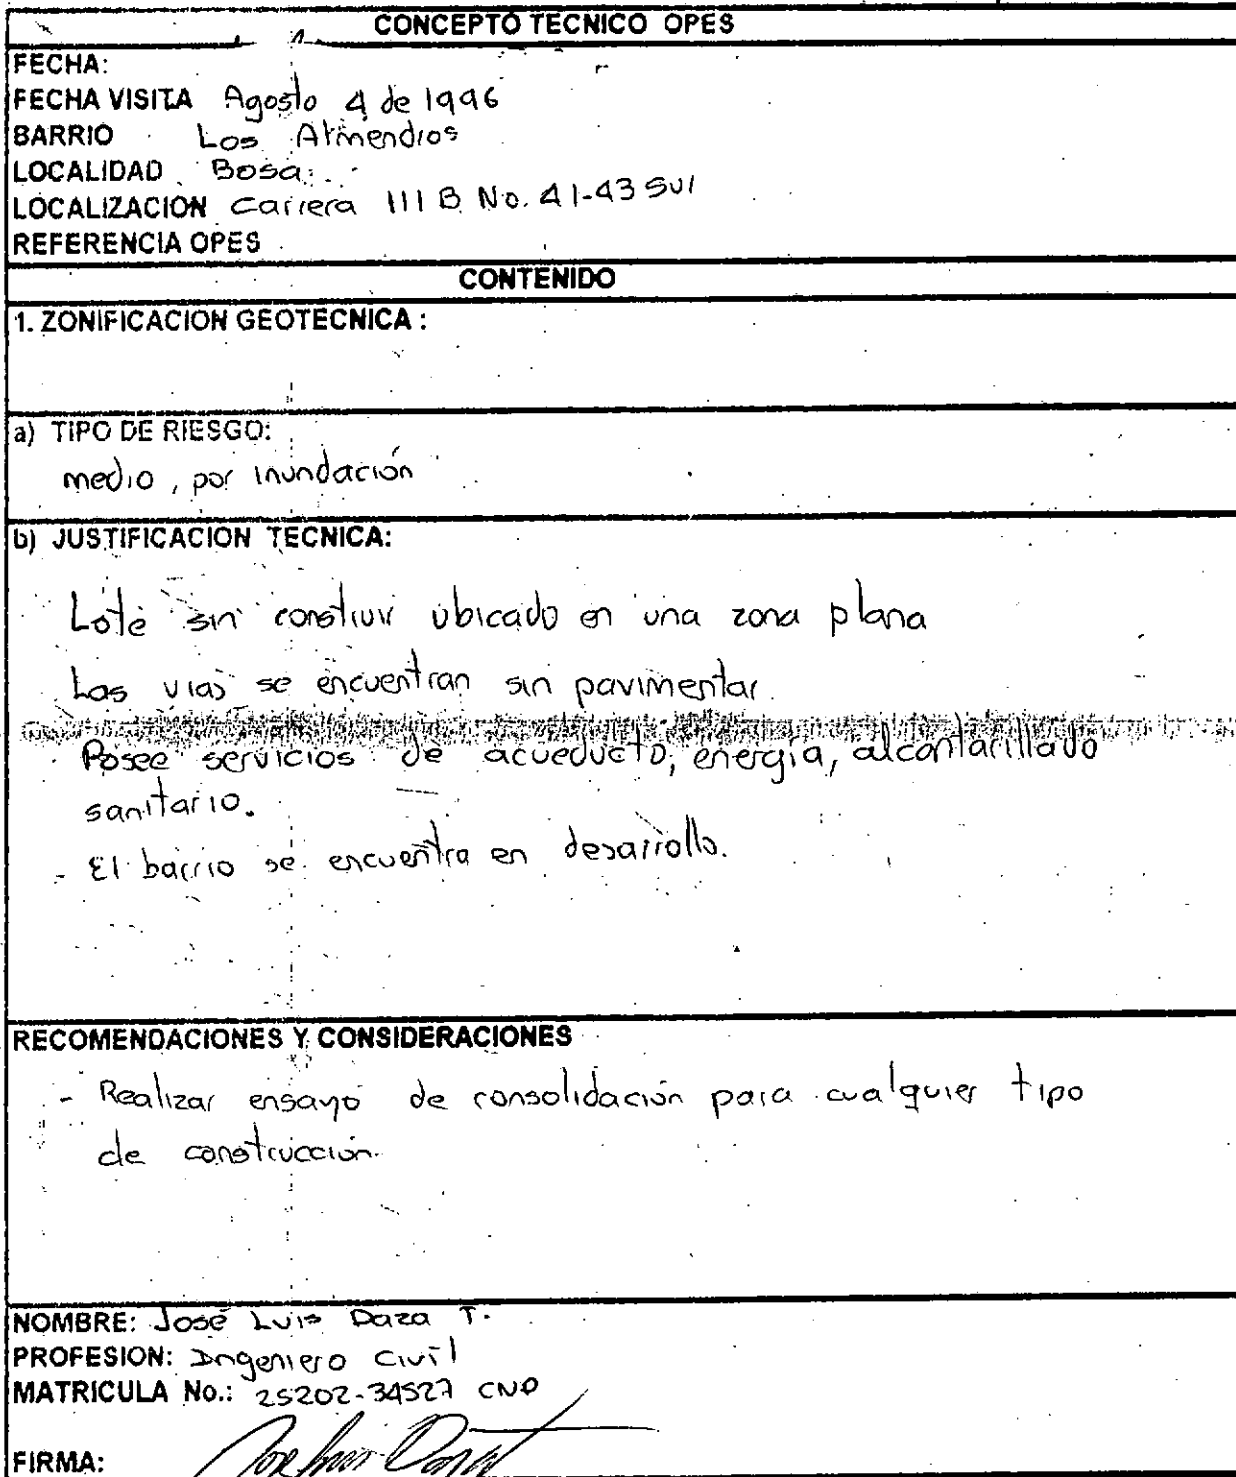 CONCEPTO TECNICO OPES
FECHA:
FECHA VISITA Agosto 4 de 1996
BARRIO Los Almendros
LOCALIDAD Bosa
LOCALIZACION Carrera 111 B No. 41-43 Sur
REFERENCIA OPES
CONTENIDO
1. ZONIFICACION GEOTECNICA :
a) TIPO DE RIESGO:
medio, por inundación
b) JUSTIFICACION TECNICA:
Lote sin construir ubicado en una zona plana
Las vias se encuentran sin pavimentar.
Posee servicios de acueducto, energía, alcantarillado
sanitario.
- El barrio se encuentra en desarrollo.
RECOMENDACIONES Y CONSIDERACIONES
- Realizar ensayo de consolidación para cualquier tipo
de construcción.
NOMBRE: José Luis Daza T.
PROFESION: Ingeniero Civil
MATRICULA No.: 25202-34527 CND
FIRMA: